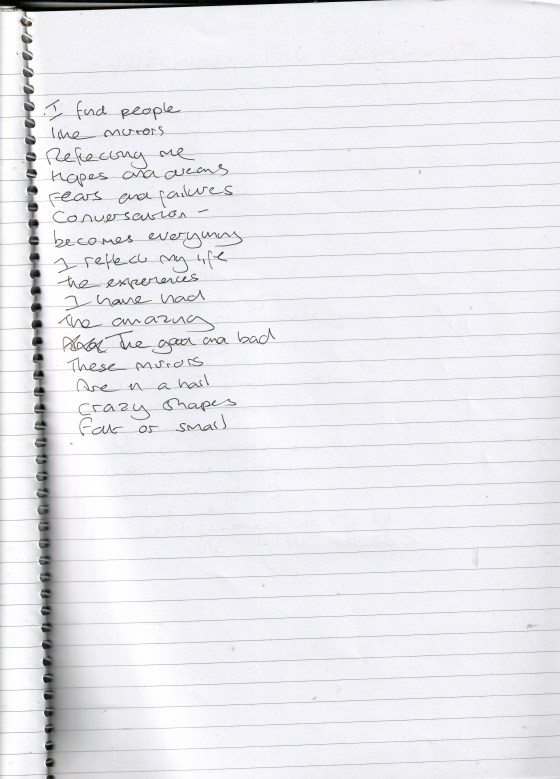 I find people
like mirrors
Reflecting me
Hopes and dreams
Fears and failures
Conversation –
becomes everything
I reflect my life
the experiences
I have had
the amazing
The good and bad
These mirrors
Are in a hall
crazy shapes
Fat or small